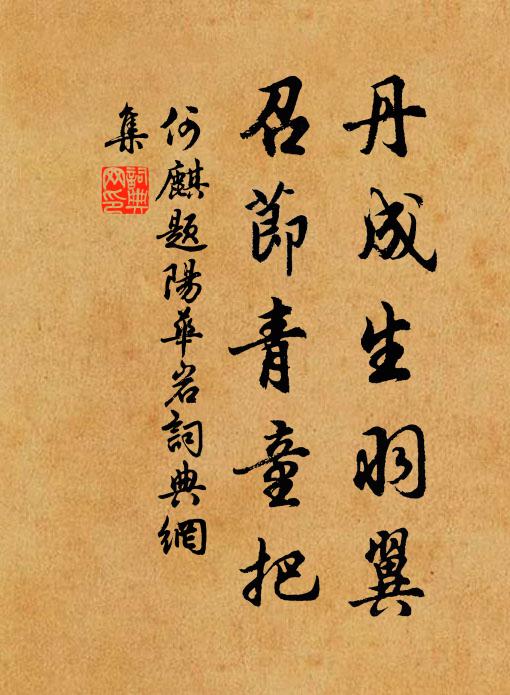 丹成生羽翼
召節青童把
何麒題陽華岩詞典網
集
詞典
网印